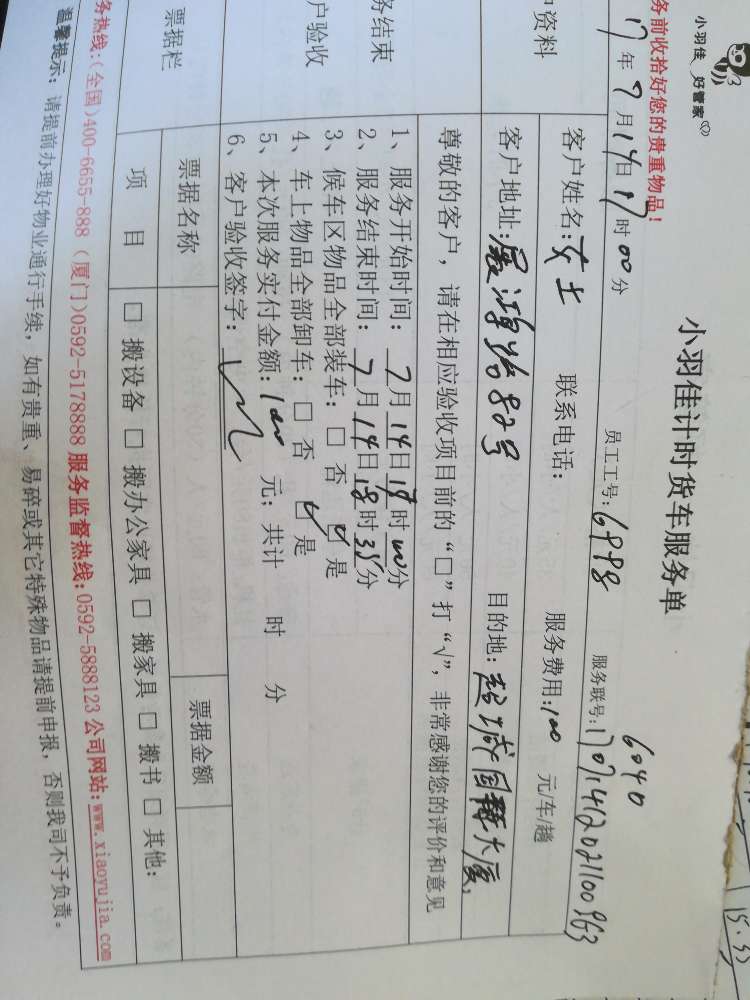 小羽佳 好管家
小羽佳计时货车服务单
务前收拾好您的贵重物品！
6040
17年7月14日17时00分 员工工号：6998 服务联号：17071412021100963
户资料
客户姓名：女士 联系电话： 服务费用：100 元/车/趟
客户地址： 82号 目的地：
尊敬的客户，请在相应验收项目前的“□”打“√”，非常感谢您的评价和意见
务结束
户验收
1、服务开始时间：7月14日 时00分
2、服务结束时间：7月14日18时35分
3、候车区物品全部装车：□ 否 ☑ 是
4、车上物品全部卸车：□ 否 ☑ 是
5、本次服务实付金额：100 元；共计 时 分
6、客户验收签字：
票据栏
票据名称 票据金额
项 目 □ 搬设备 □ 搬办公家具 □ 搬家具 □ 搬书 □ 其他：
务热线：(全国)400-6655-888（厦门)0592-5178888 服务监督热线：0592-5888123 公司网站：www.xiaoyujia.com
温馨提示：请提前办理好物业通行手续，如有贵重、易碎或其它特殊物品请提前申报，否则我司不予负责。